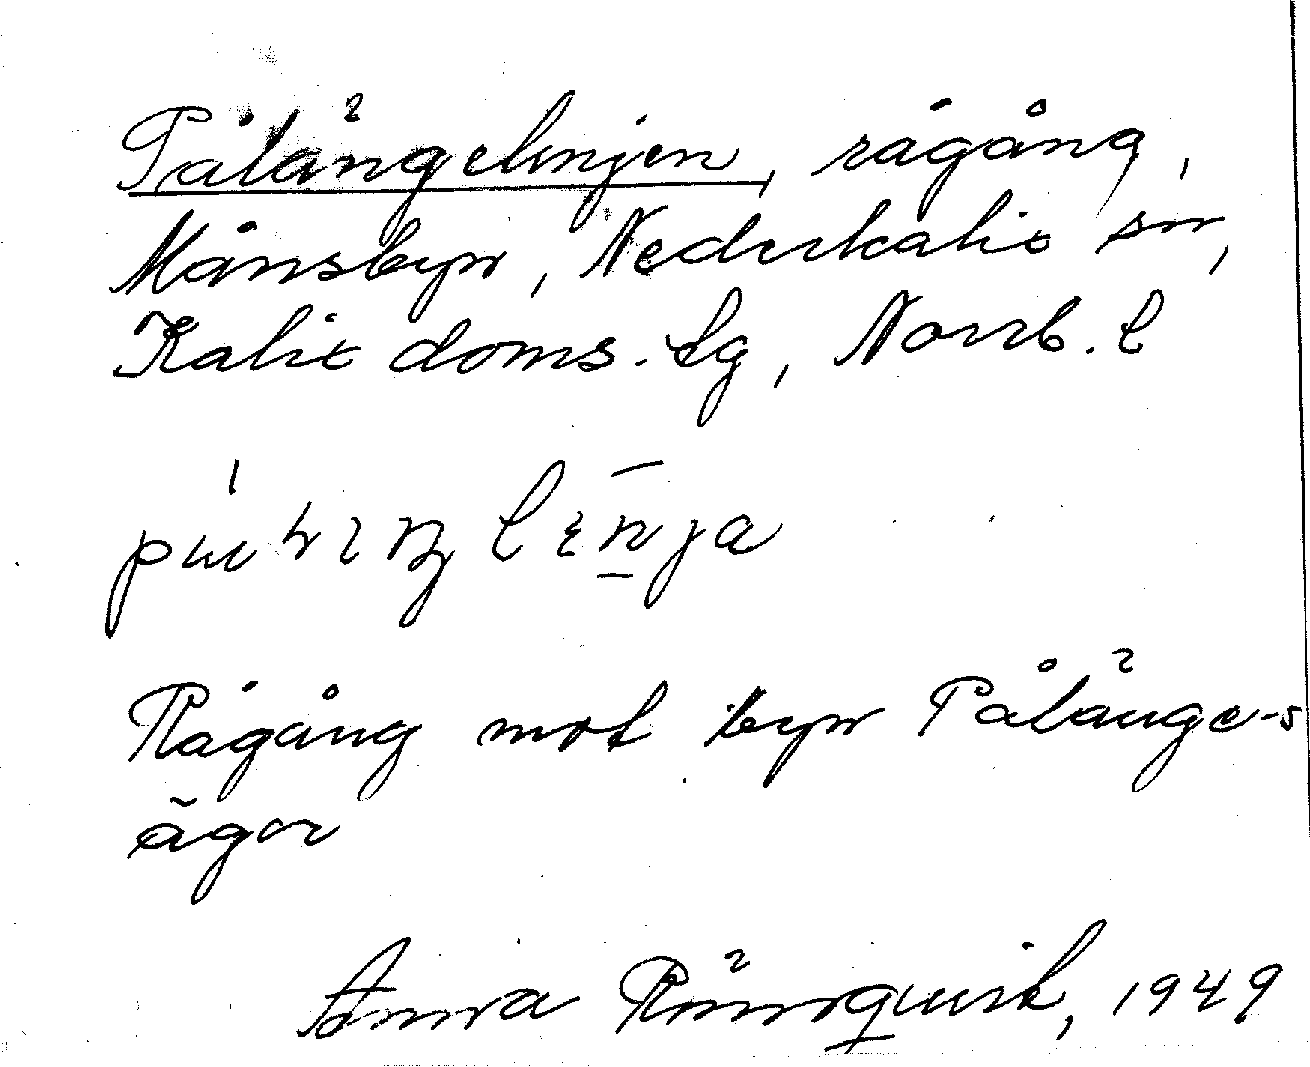 Pålångelinjen, rågång,
Månsbyn, Nederkalix sn,
Kalix doms.tg, Norrb. l
Rågång mot byn Pålånge-s
ägor
Anna Rönnquist, 1949